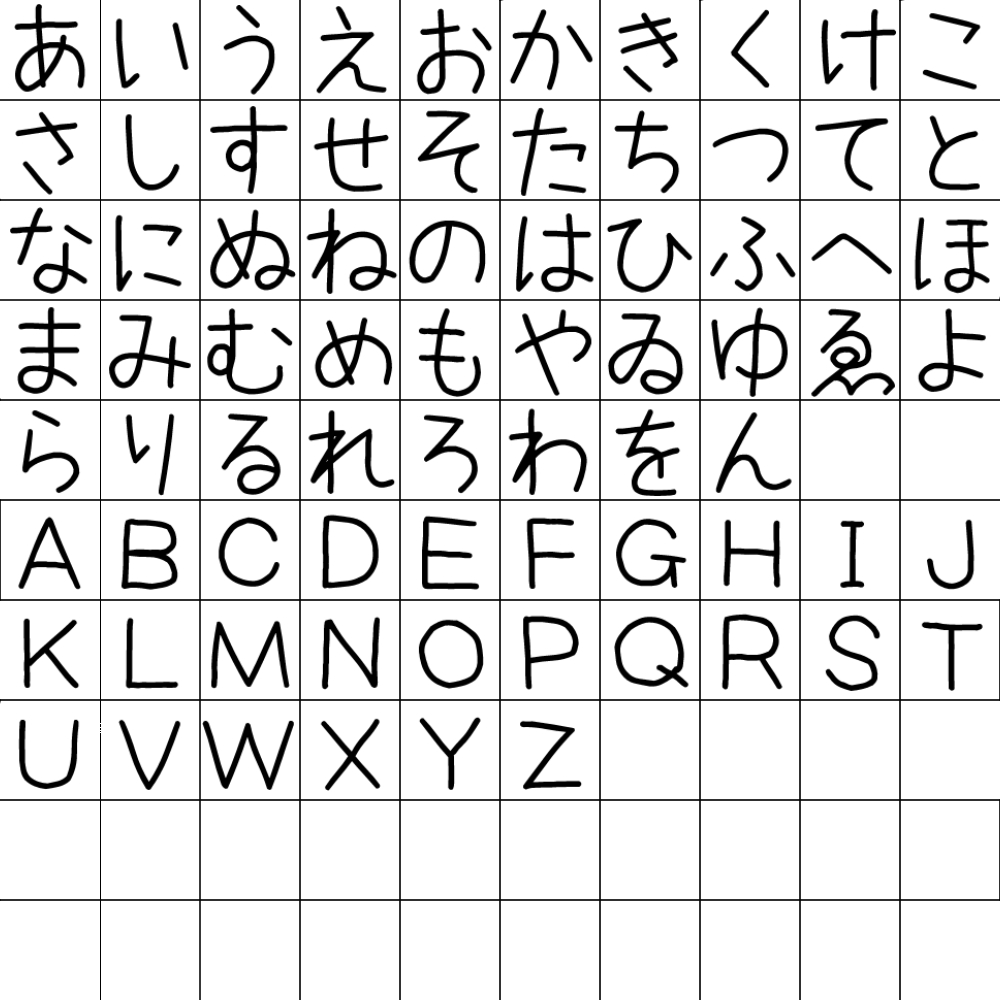 あいうえおかきくけこ
さしすせそたちつてと
なにぬねのはひふへほ
まみむめもやゐゆゑよ
らりるれろわをん
ABCDEFGHIJ
KLMNOPQRST
UVWXYZ